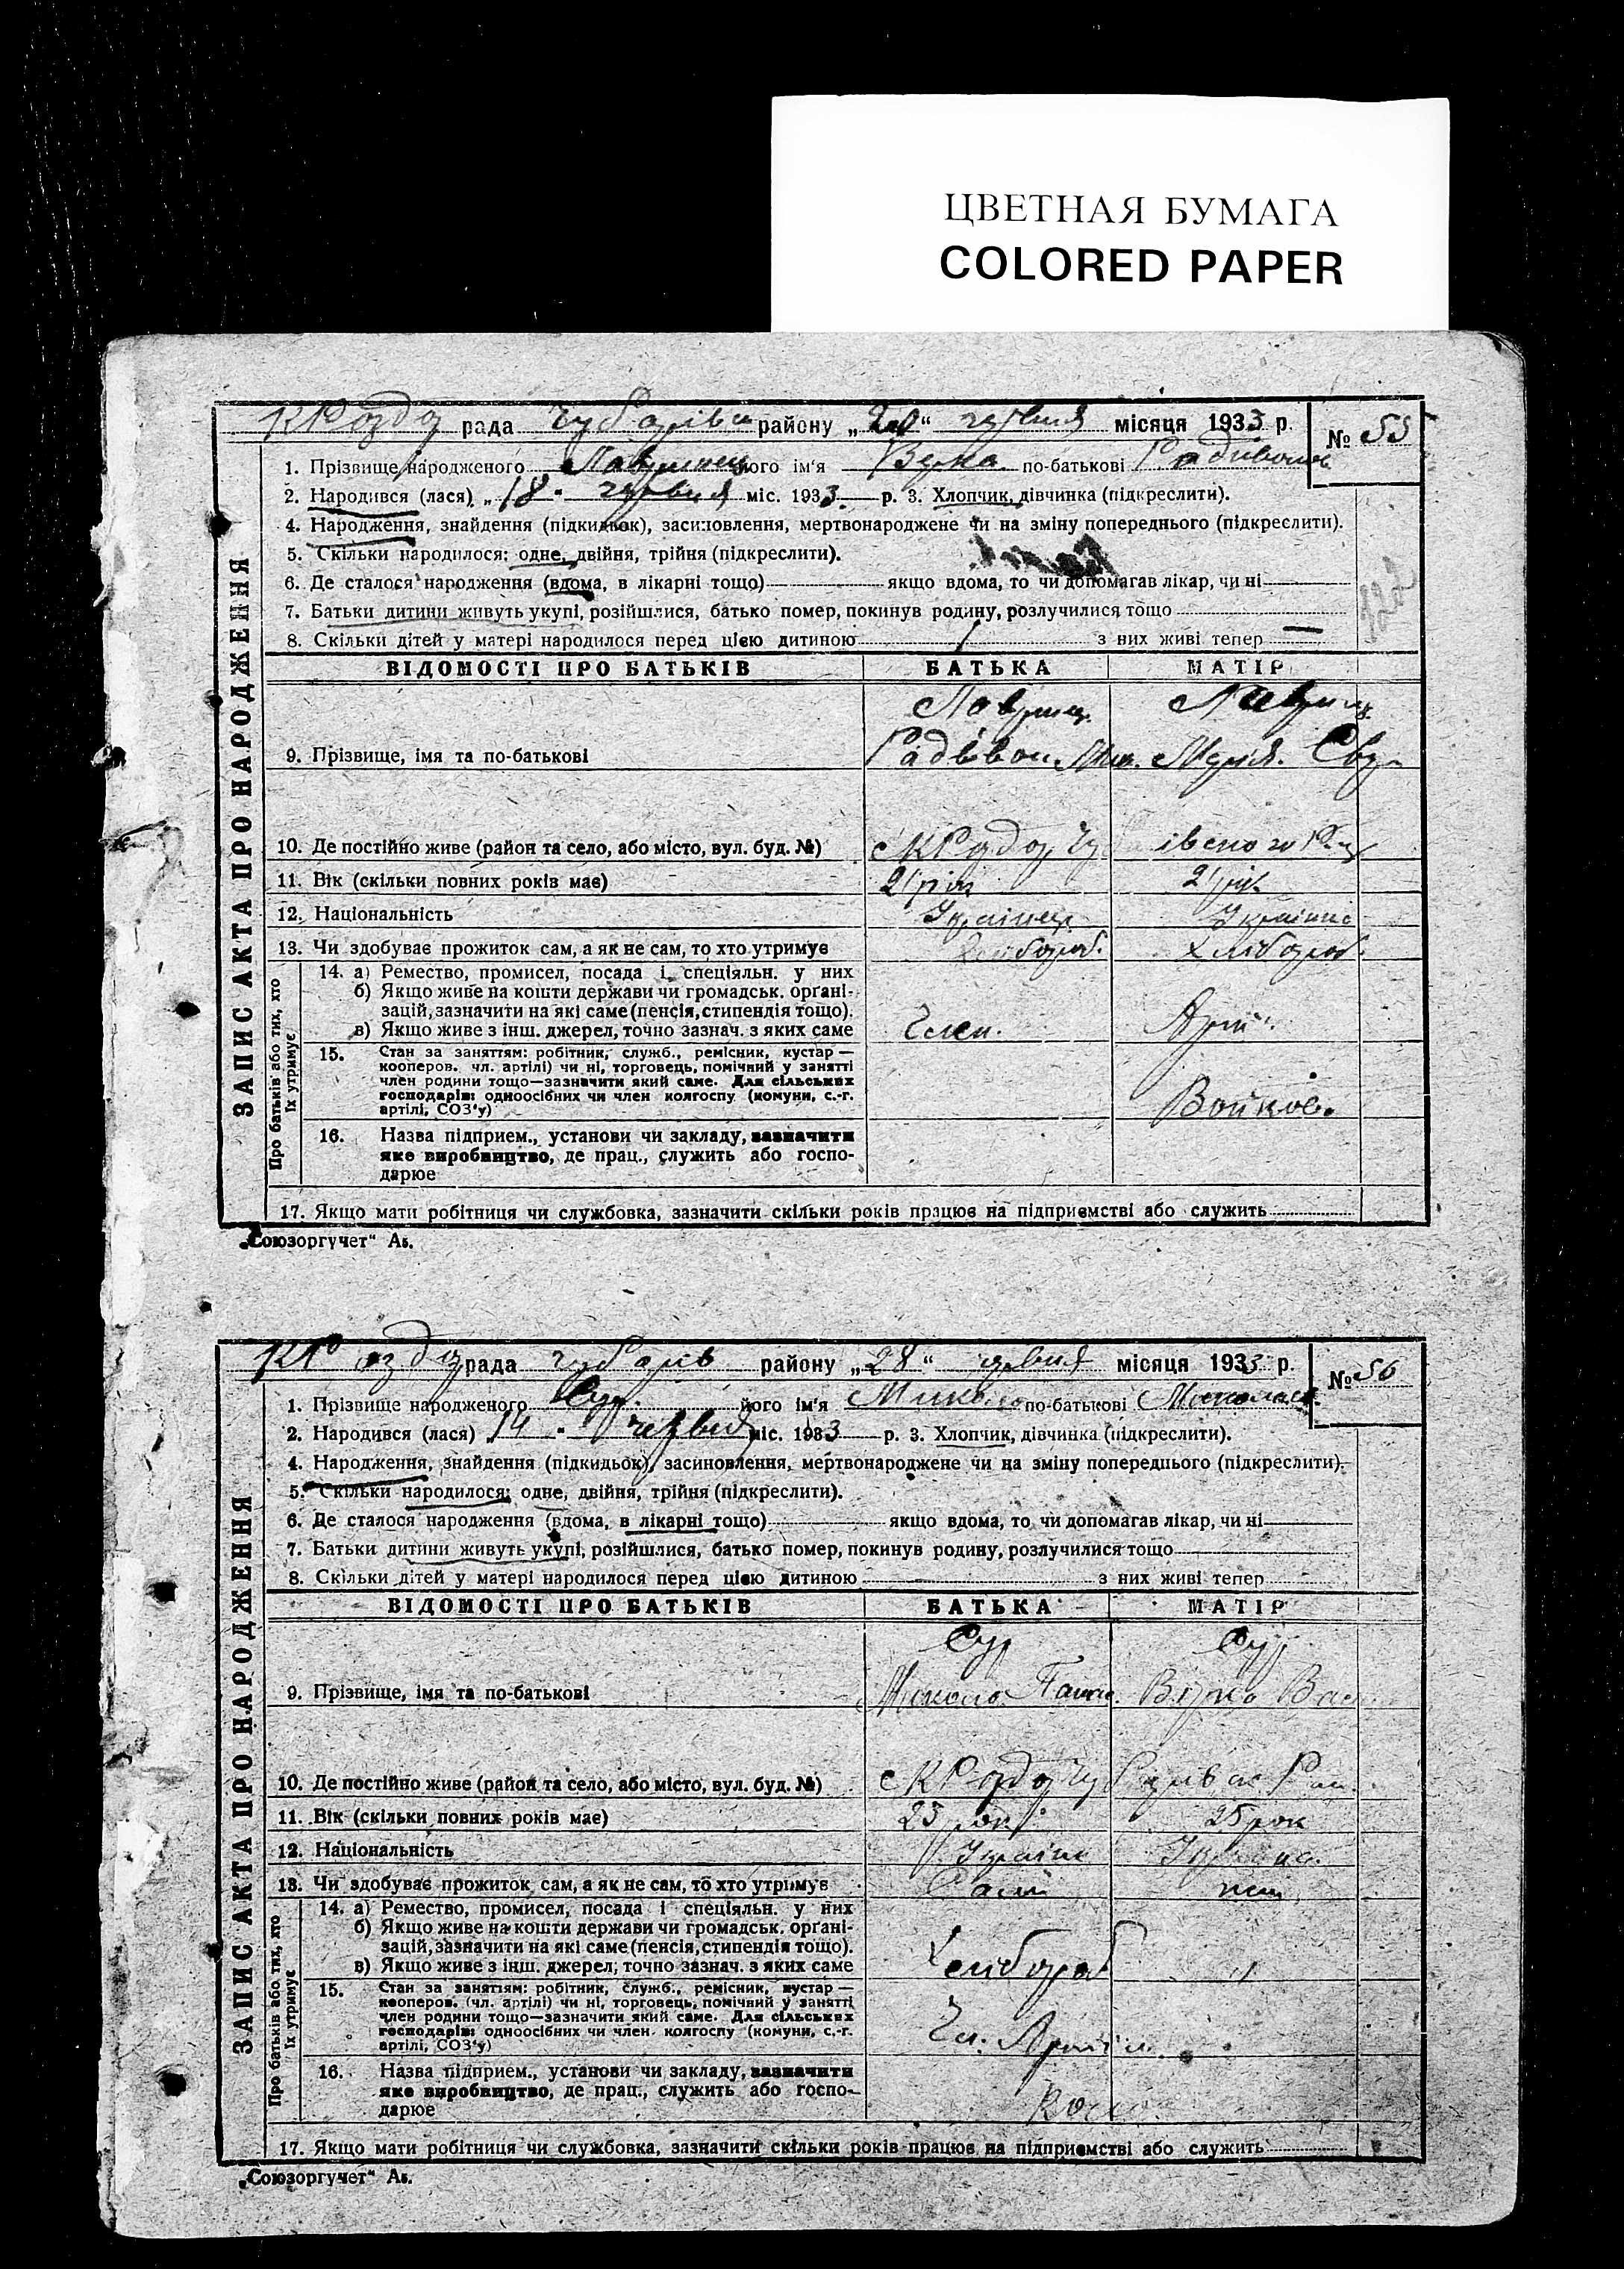 ЦВЕТНАЯ БУМАГА
COLORED PAPER
рада район у „20“ червня місяця 1933 р. № 55
1. Прізвище народженого його ім'я Вера по-батькові
2. Народився (лася) „18 - червня міс. 1933 р. 3. Хлопчик, дівчинка (підкреслити).
4. Народження, знайдення (підкидьок), засиновлення, мертвонароджене чи на зміну попереднього (підкреслити).
5. Скільки народилося: одне, двійня, трійня (підкреслити).
6. Де сталося народження (вдома, в лікарні тощо) якщо вдома, то чи допомагав лікар, чи ні
7. Батьки дитини живуть укупі, розійшлися, батько помер, покинув родину, розлучилися тощо
8. Скільки дітей у матері народилося перед цією дитиною 1 з них живі тепер —
ЗАПИС АКТА ПРО НАРОДЖЕННЯ
ВІДОМОСТІ ПРО БАТЬКІВ БАТЬКА МАТІР
9. Прізвище, імя та по-батькові Марія
10. Де постійно живе (район та село, або місто, вул. буд. №)
11. Вік (скільки повних років має) 21 рік 21 рік
12. Національність Українец Українка
13. Чи здобуває прожиток сам, а як не сам, то хто утримує Хлібороб. Хлібороб.
Про батьків або тих, хто їх утримує
14. а) Ремество, промисел, посада і спеціяльн. у них
б) Якщо живе на кошти держави чи громадськ. орґані-
зацій, зазначити на які саме (пенсія, стипендія тощо).
в) Якщо живе з інш. джерел, точно зазнач. з яких саме Член.
15. Стан за заняттям: робітник, служб., ремісник, кустар —
кооперов. чл. артілі) чи ні, торговець, помічний у занятті
член родини тощо—зазначити який саме. Для сільських
господарів: одноосібних чи член колгоспу (комуни, с.-г.
артілі, СОЗ'у)
16. Назва підприєм., установи чи закладу, зазначити
яке виробництво, де прац., служить або госпо-
дарює
17. Якщо мати робітниця чи службовка, зазначити скільки років працює на підприємстві або служить
„Союзоргучет“ Аб.
рада район у „28“ червня місяця 1933 р. № 56
1. Прізвище народженого Сур. його ім'я Микола по-батькові
2. Народився (лася) „14 - червня міс. 1933 р. 3. Хлопчик, дівчинка (підкреслити).
4. Народження, знайдення (підкидьок), засиновлення, мертвонароджене чи на зміну попереднього (підкреслити).
5. Скільки народилося: одне, двійня, трійня (підкреслити).
6. Де сталося народження (вдома, в лікарні тощо) якщо вдома, то чи допомагав лікар, чи ні
7. Батьки дитини живуть укупі, розійшлися, батько помер, покинув родину, розлучилися тощо
8. Скільки дітей у матері народилося перед цією дитиною з них живі тепер
ЗАПИС АКТА ПРО НАРОДЖЕННЯ
ВІДОМОСТІ ПРО БАТЬКІВ БАТЬКА МАТІР
Сур Сур
9. Прізвище, імя та по-батькові Микола
10. Де постійно живе (район та село, або місто, вул. буд. №)
11. Вік (скільки повних років має) 23 рок 25 рок
12. Національність
13. Чи здобуває прожиток сам, а як не сам, то хто утримує
Про батьків або тих, хто їх утримує
14. а) Ремество, промисел, посада і спеціяльн. у них
б) Якщо живе на кошти держави чи громадськ. орґані-
зацій, зазначити на які саме (пенсія, стипендія тощо).
в) Якщо живе з інш. джерел, точно зазнач. з яких саме Хлібороб "
15. Стан за заняттям: робітник, служб., ремісник, кустар —
кооперов. (чл. артілі) чи ні, торговець, помічний у занятті
член родини тощо—зазначити який саме. Для сільських
господарів: одноосібних чи член колгоспу (комуни, с.-г.
артілі, СОЗ'у)
16. Назва підприєм., установи чи закладу, зазначити
яке виробництво, де прац., служить або госпо-
дарює
17. Якщо мати робітниця чи службовка, зазначити скільки років працює на підприємстві або служить
„Союзоргучет“ Аб.